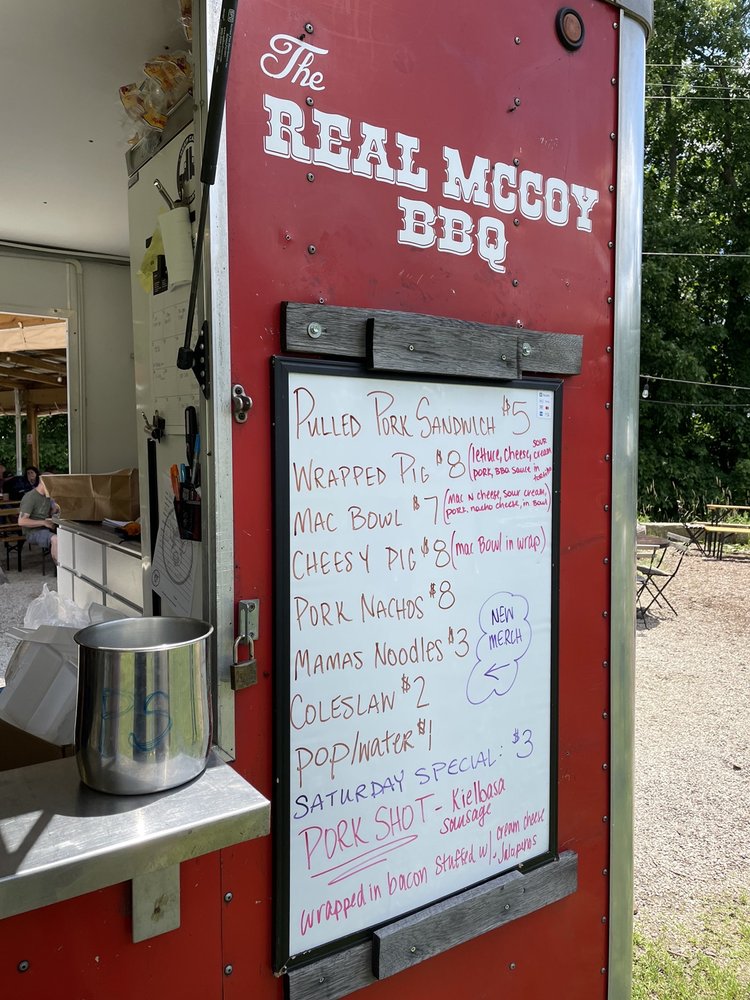 The
REAL MCCOY
BBQ
PULLED PORK SANDWICH $5
WRAPPED PIG $8 (lettuce, cheese, sour cream
pork, BBQ sauce in tortilla
MAC BOWL $7 (mac n cheese, sour cream,
pork, nacho cheese, in Bowl
CHEESY PIG $8 (mac Bowl in wrap)
PORK NACHOS $8
MAMAS NOODLES $3
COLESLAW $2
POP/WATER $1
NEW
MERCH
SATURDAY SPECIAL: $3
PORK SHOT - Kielbasa
sausage
wrapped in bacon stuffed w/ cream cheese
+ Jalapenos
PS